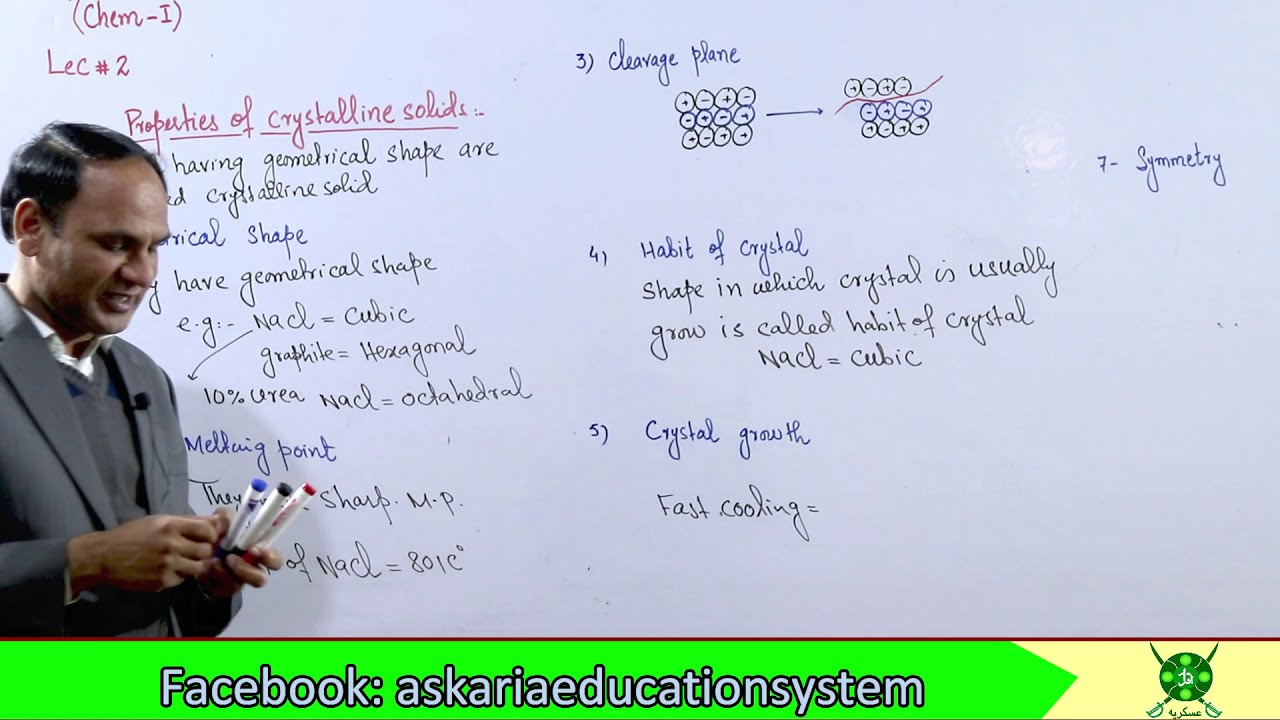 (Chem-I)
Lec # 2
Properties of crystalline solids:-
having geometrical shape are
crystalline solid
shape
have geometrical shape
e.g:- Nacl = Cubic
graphite = Hexagonal
10% urea Nacl = octahedral
Melting point
They Sharp. M.p.
of Nacl = 801c°
3) Cleavage plane
+ - + -
- + - +
+ - + +
+ - + -
- + - +
+ - + +
4) Habit of crystal
shape in which crystal is usually
grow is called habit of crystal
Nacl = cubic
5) Crystal growth
Fast cooling =
7- Symmetry
Facebook: askariaeducationsystem
عسکریہ